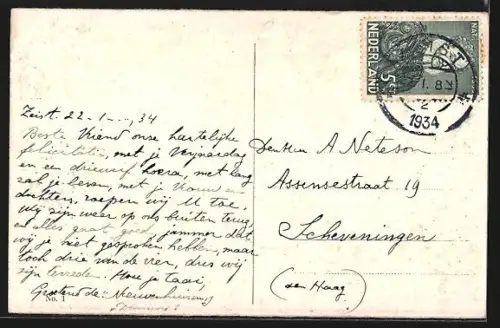 Zeist. 22-1-, 34
Beste Vriend onze hartelijke
felicitatie, met je Verjaardag
en een driewerf hoera, met lang
zal je leven, met je Vrouw en
dochters, roepen wij U toe,
Wij zijn weer op ons buiten terug,
en alles gaat goed, jammer dat
wij je niet gesproken hebben, maar
toch drie van de vier, dus wij
zijn tevreden. Hou je taai,
Groetend de
No. 1
NEDERLAND
5
1934
Den Heer A Neteson
Assensestraat 19
Scheveningen
(den Haag)